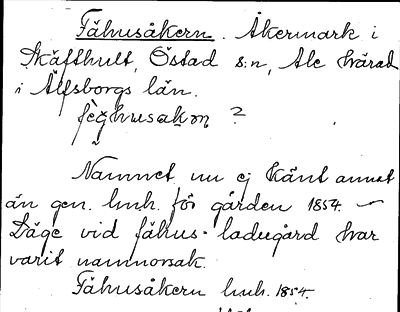 Fähusåkern. Åkermark i
Skäfthult, Östad s:n, Ale härad
i Älfsborgs län.
fèǥhusakən ?
Namnet nu ej känt annat
än gen. hmh. för gården 1854. –
Läge vid fähus - ladugård har
varit namnorsak.
Fähusåkern hmh. 1854.